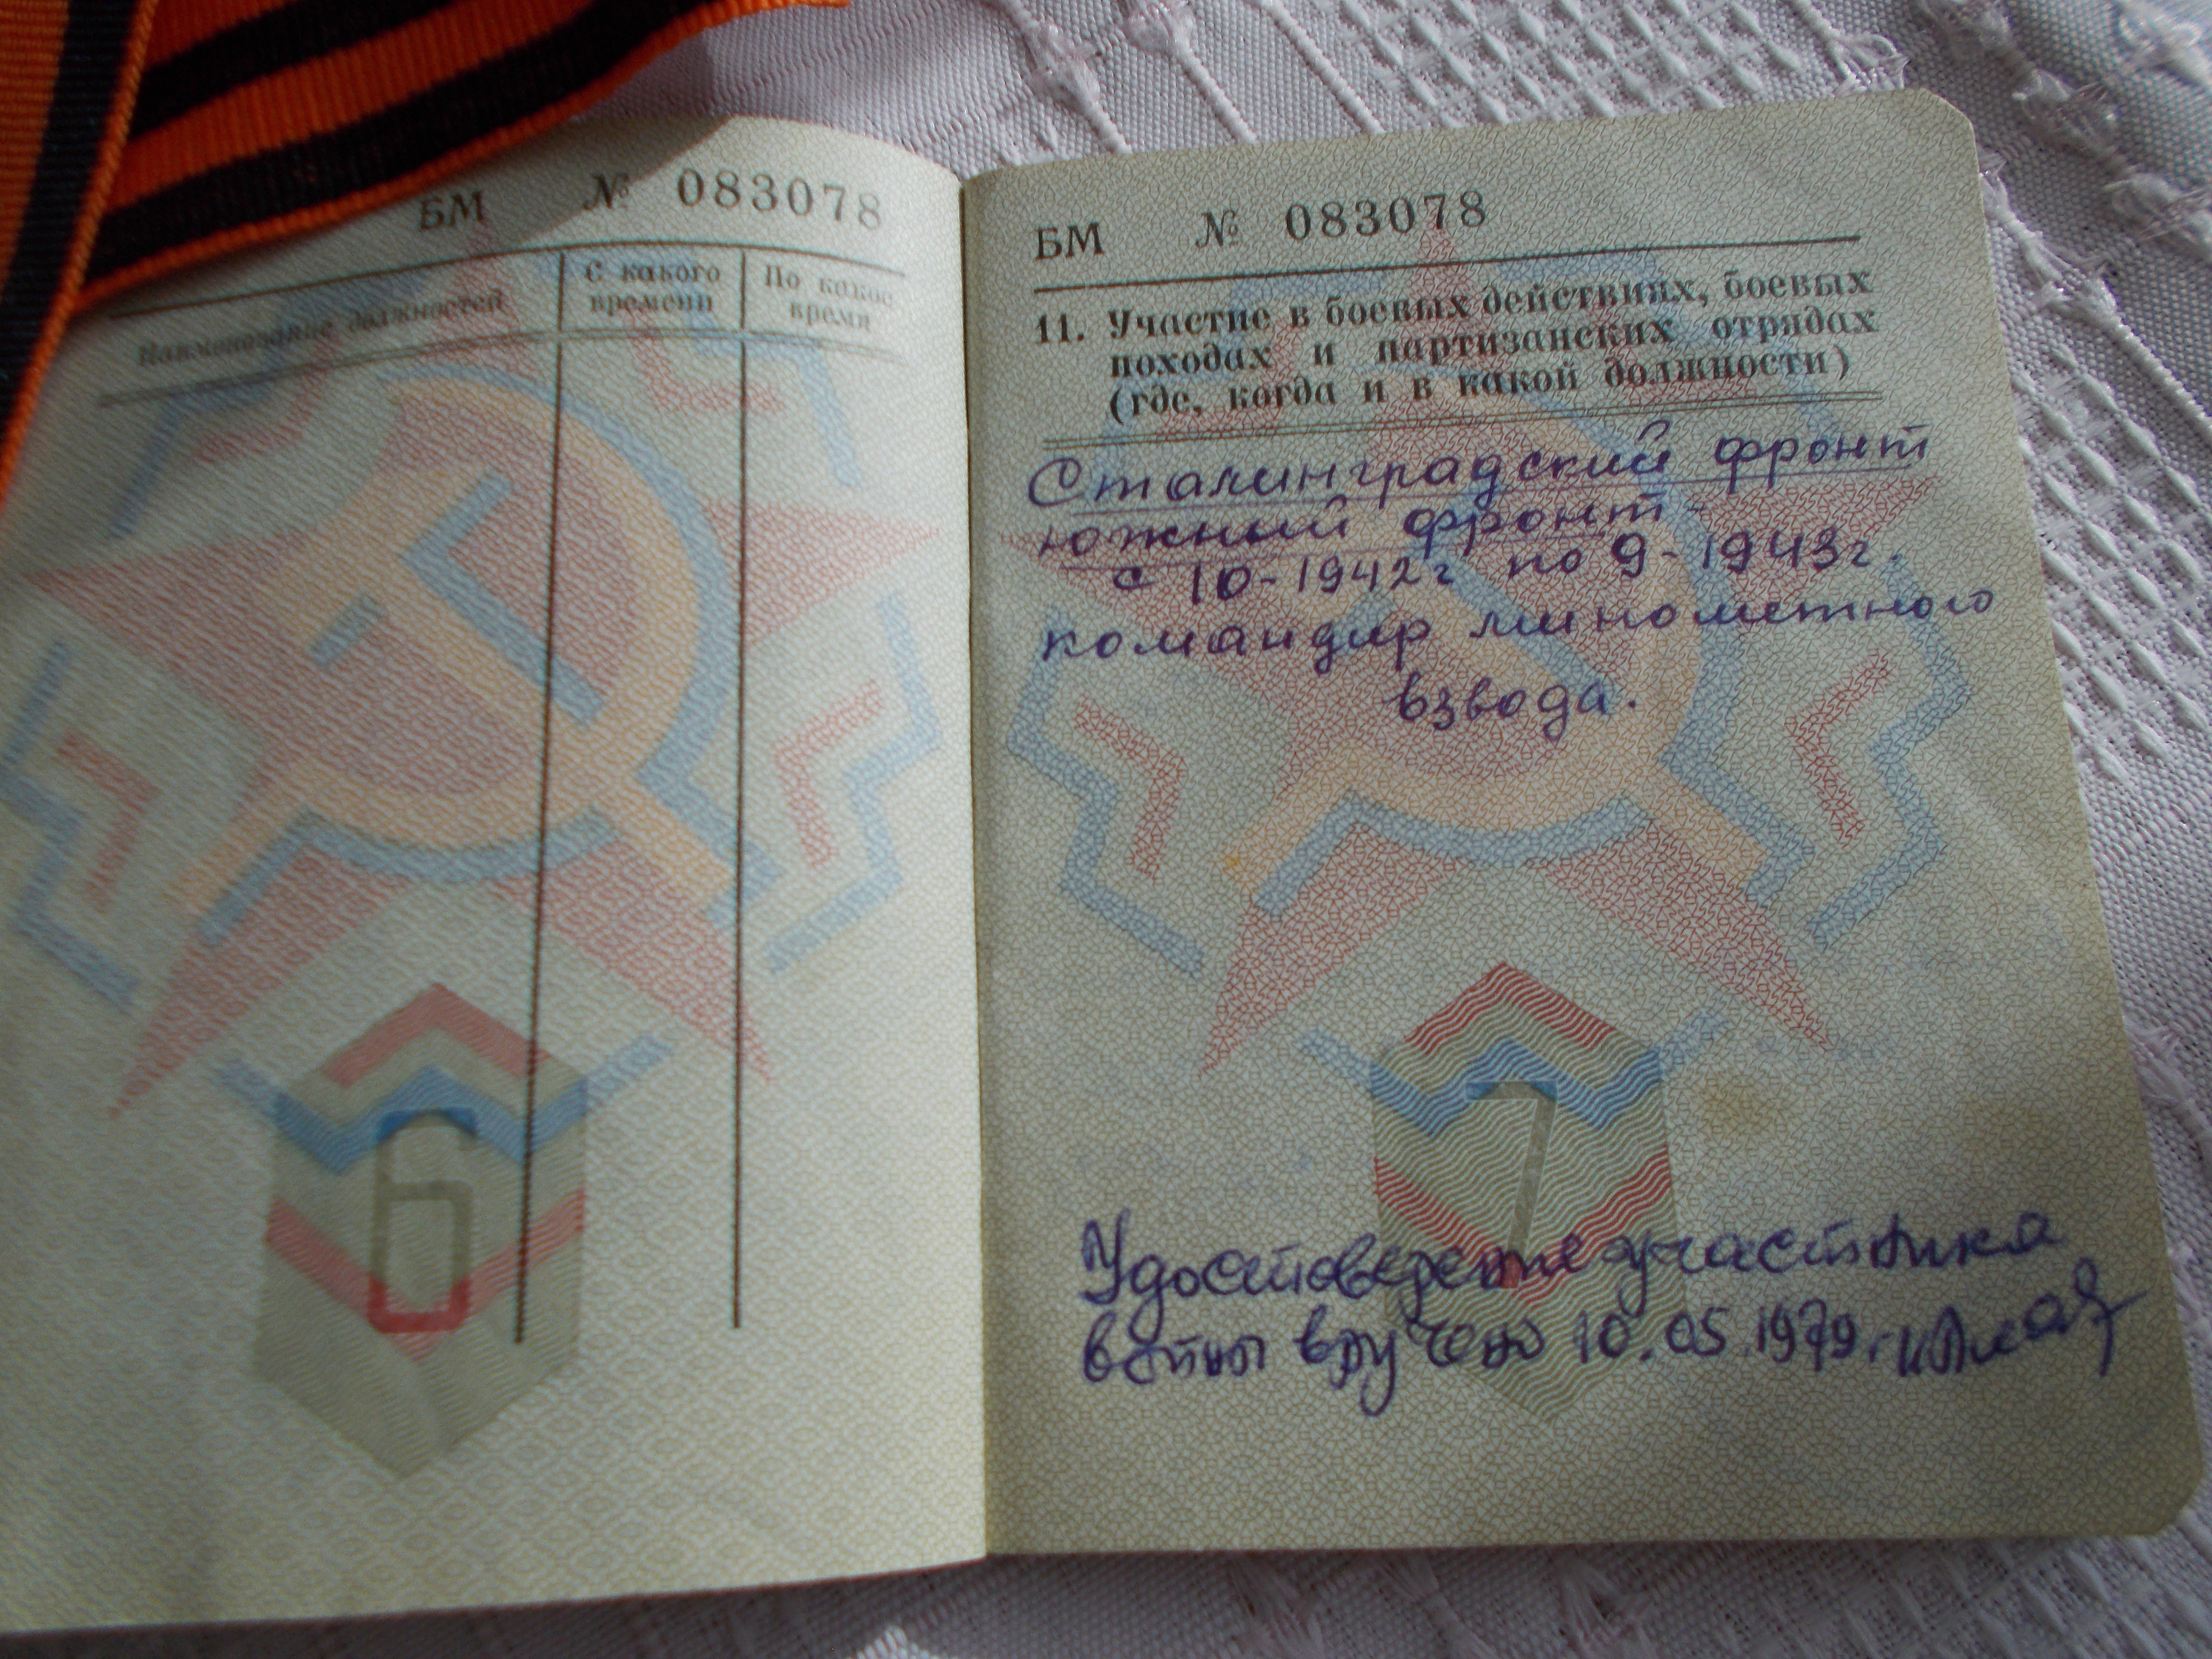 БМ № 083078
Наименование должностей
С какого
времени
По какое
время
6
БМ № 083078
11. Участие в боевых действиях, боевых
походах и партизанских отрядах
(где, когда и в какой должности)
Сталинградский фронт
южный фронт-
с 10-1942г по 9-1943г.
командир минометного
взвода.
7
Удостоверение участника
вручено 10.05.1979г.